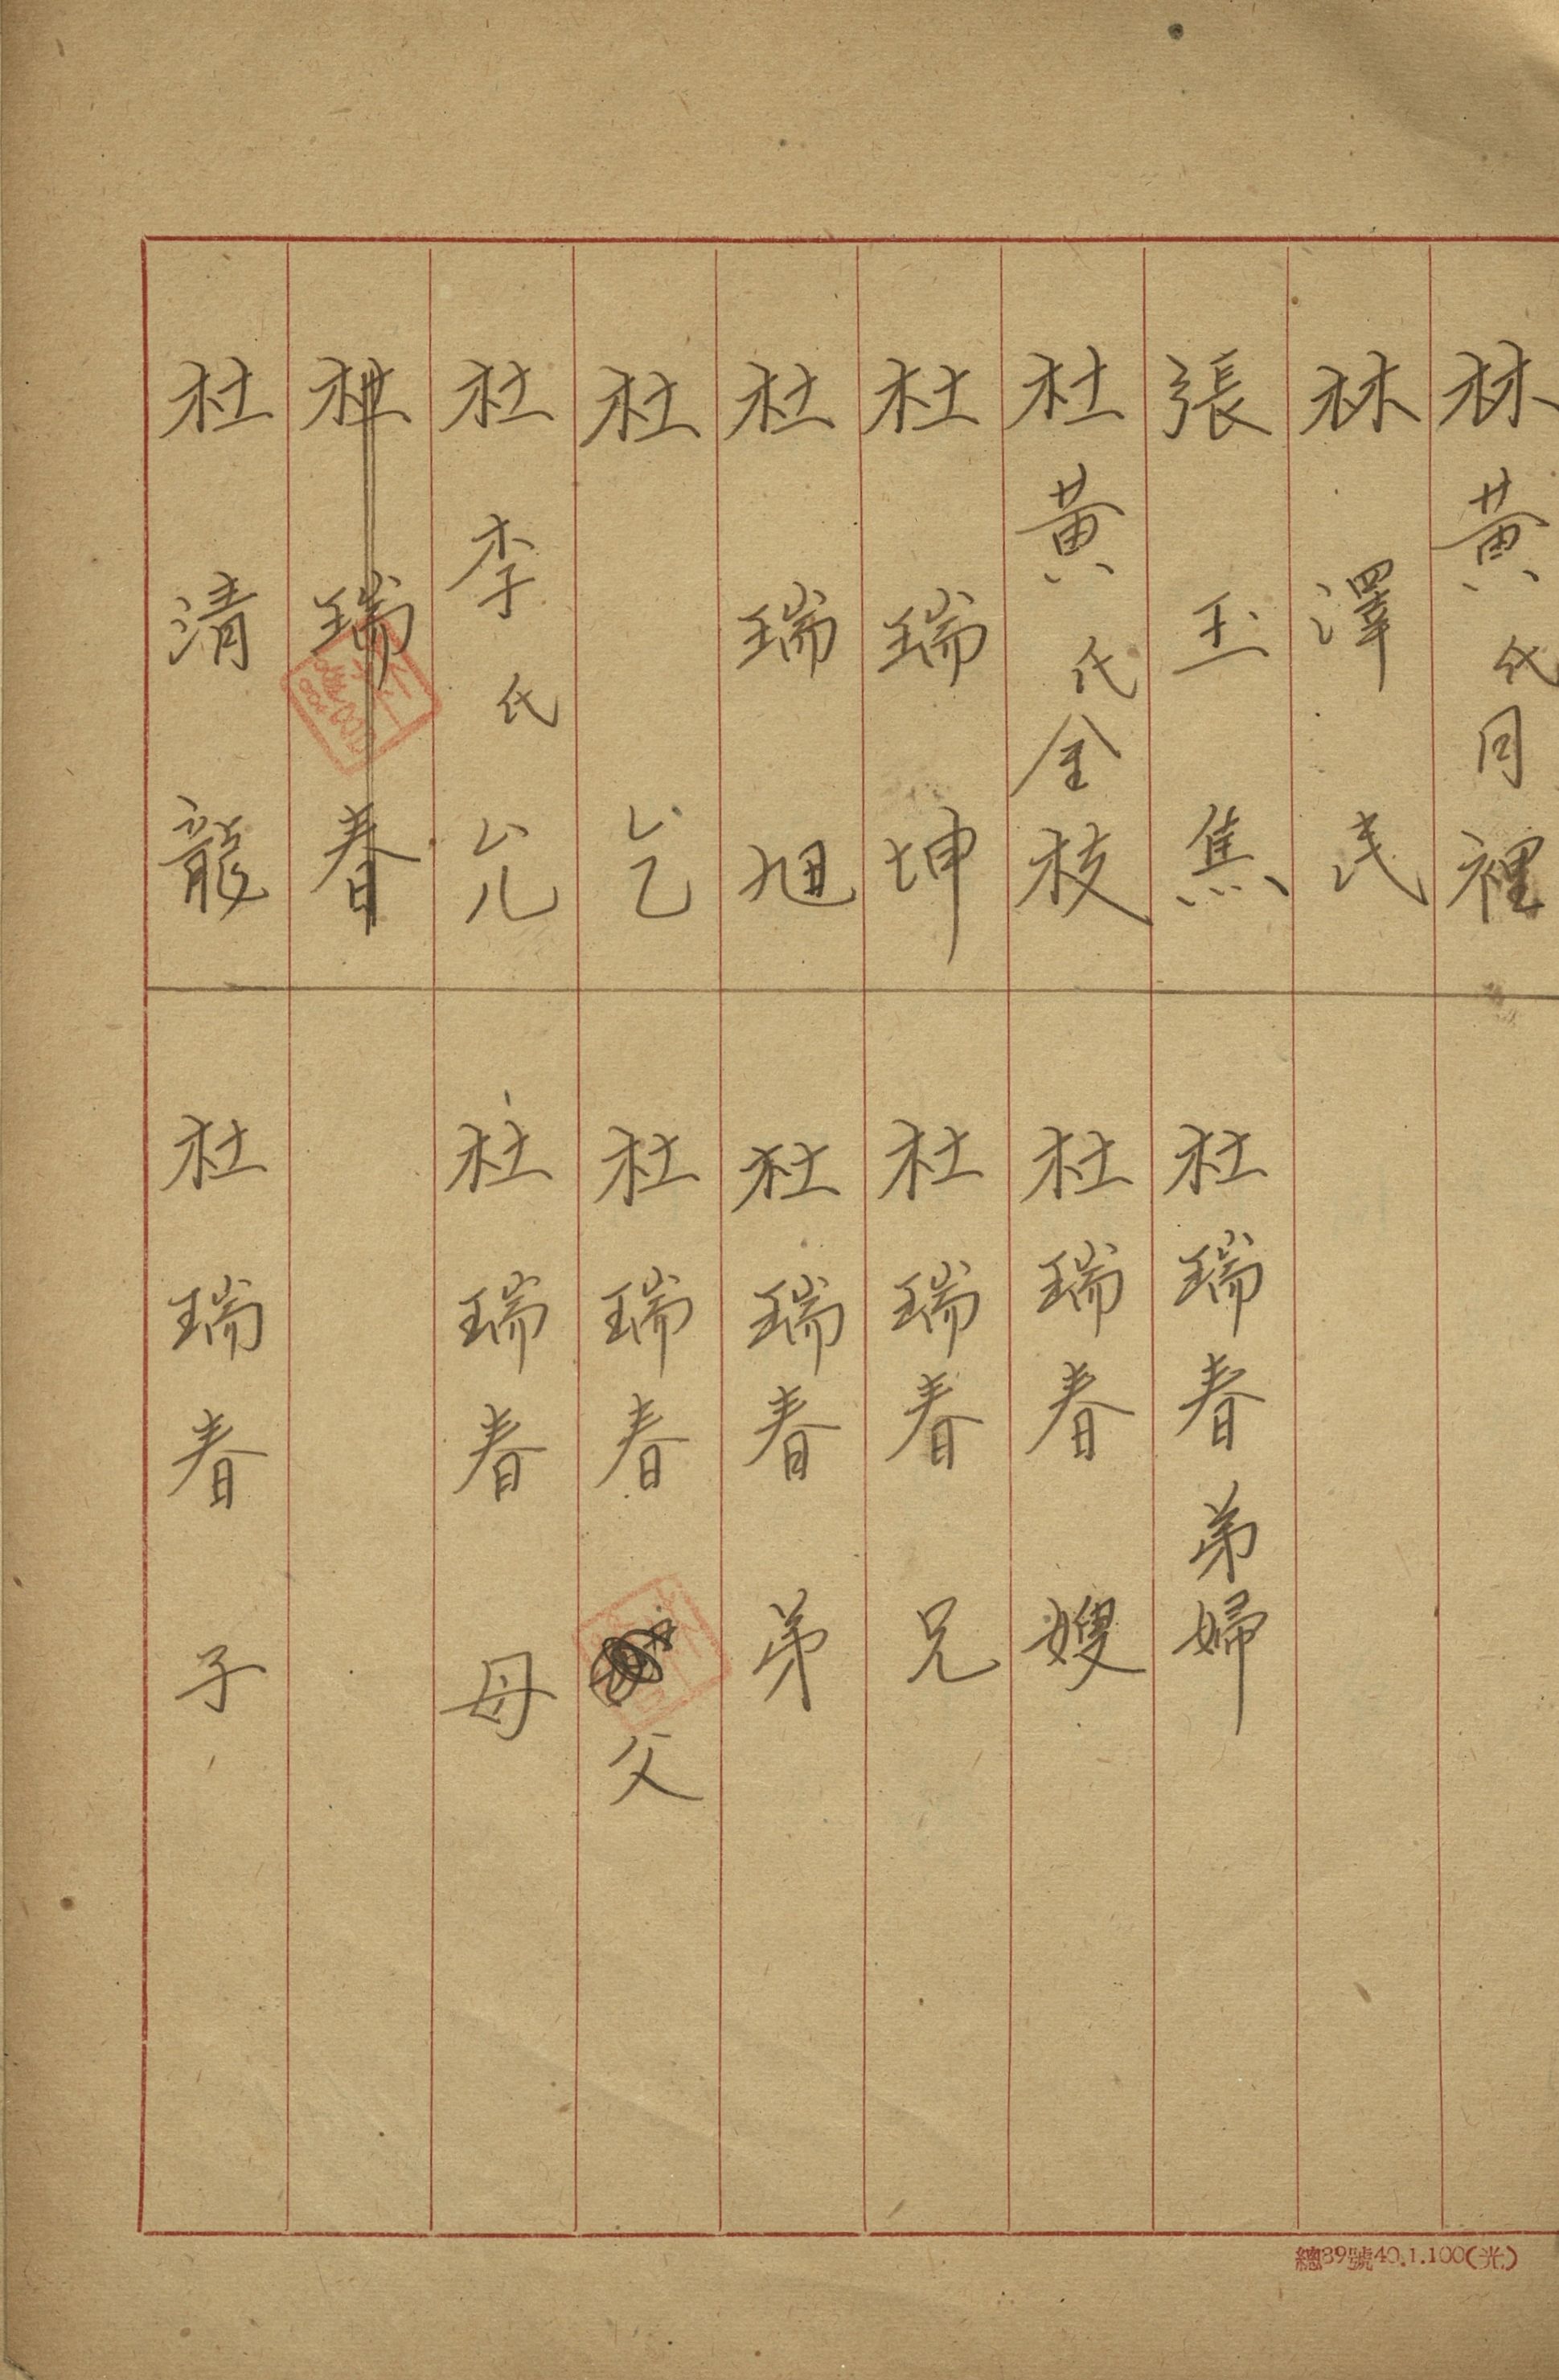 林黃氏同裡
林澤民
張玉焦 杜瑞春弟婦
杜黃氏金枝 杜瑞春嫂
杜瑞坤 杜瑞春兄
杜瑞旭 杜瑞春弟
杜乞 杜瑞春父
杜李氏允 杜瑞春母
杜瑞春
杜清龍 杜瑞春子
總39號40.1.100(光)